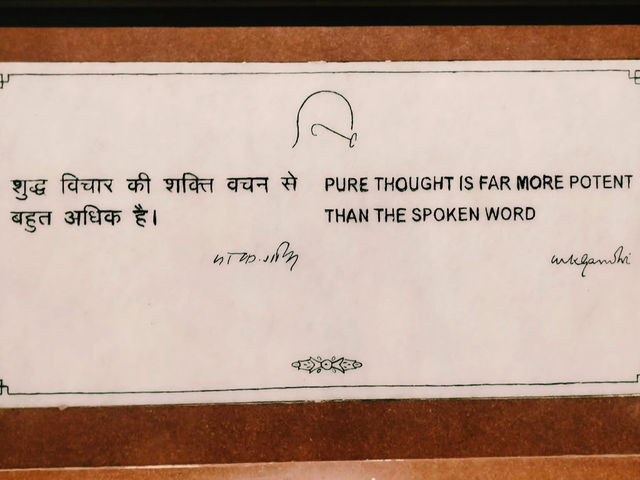 शुद्ध विचार की शक्ति वचन से
बहुत अधिक है।
PURE THOUGHT IS FAR MORE POTENT
THAN THE SPOKEN WORD
mkgandhi